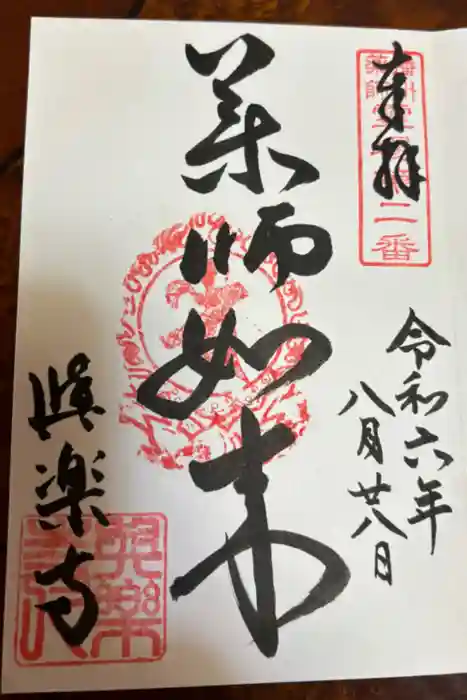 奉拝
播州
薬師
二番
令和六年
八月廿八日
薬師如来
與楽寺